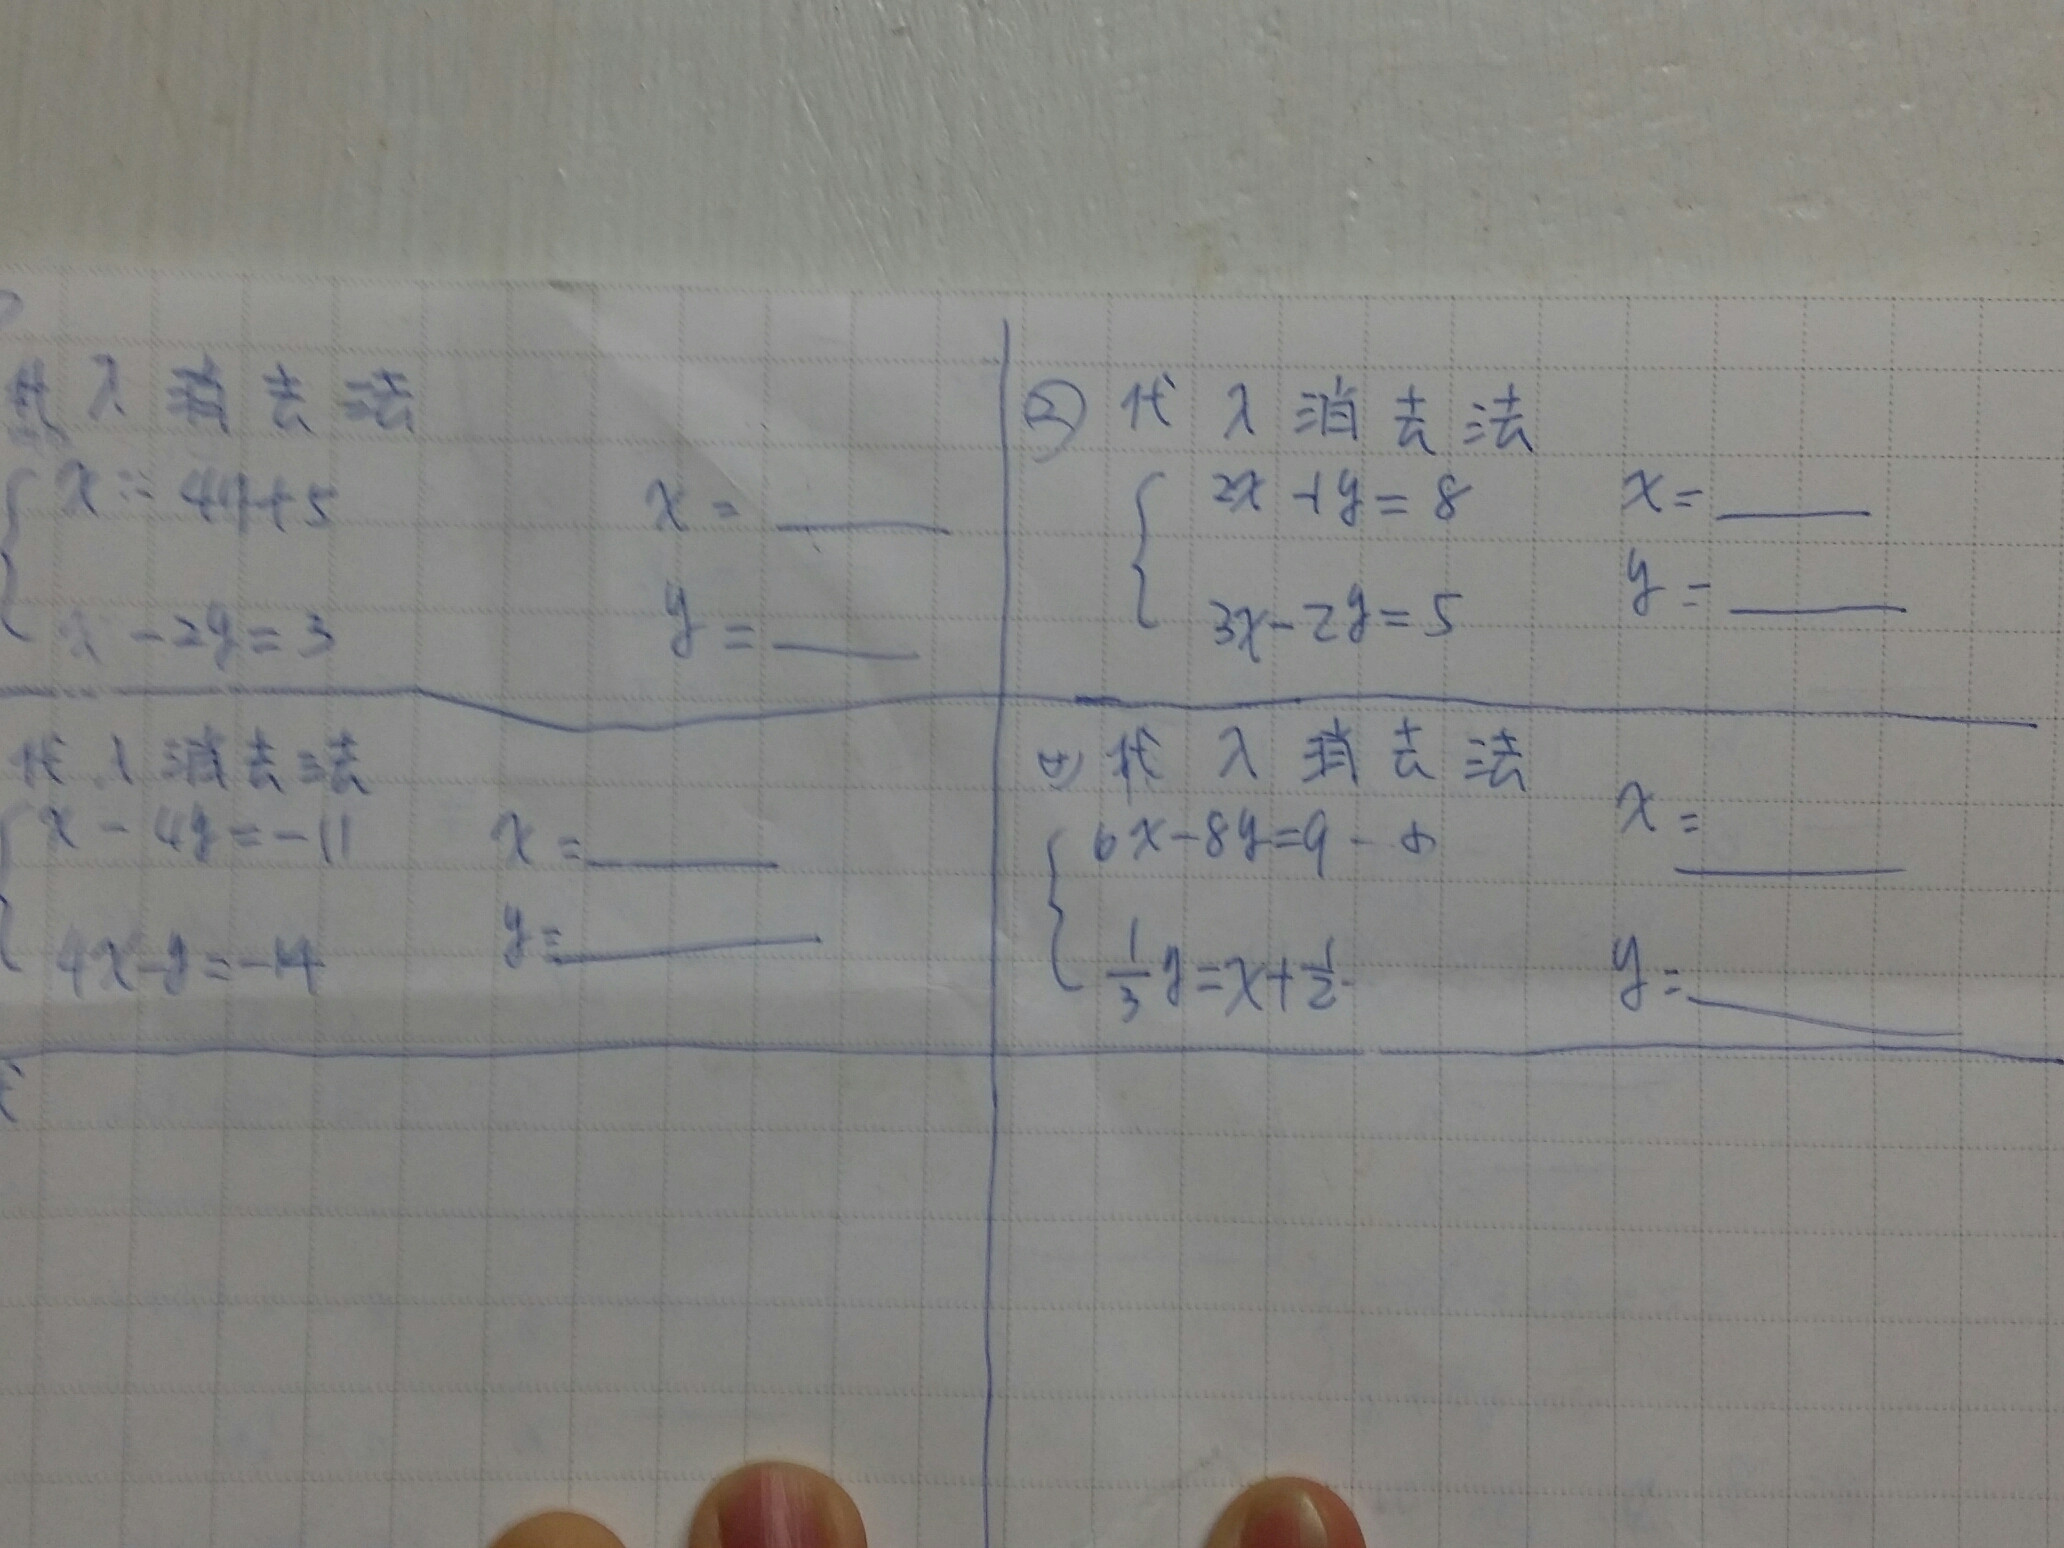 代入消去法
x = 4y+5
x = ____
x - 2y = 3
y = ____
② 代入消去法
2x + y = 8
x = ____
3x - 2y = 5
y = ____
代入消去法
x - 4y = -11
x = ____
4x - y = -14
y = ____
代入消去法
6x - 8y = 9 -
x = ____
1/3 y = x + 1/2
y = ____